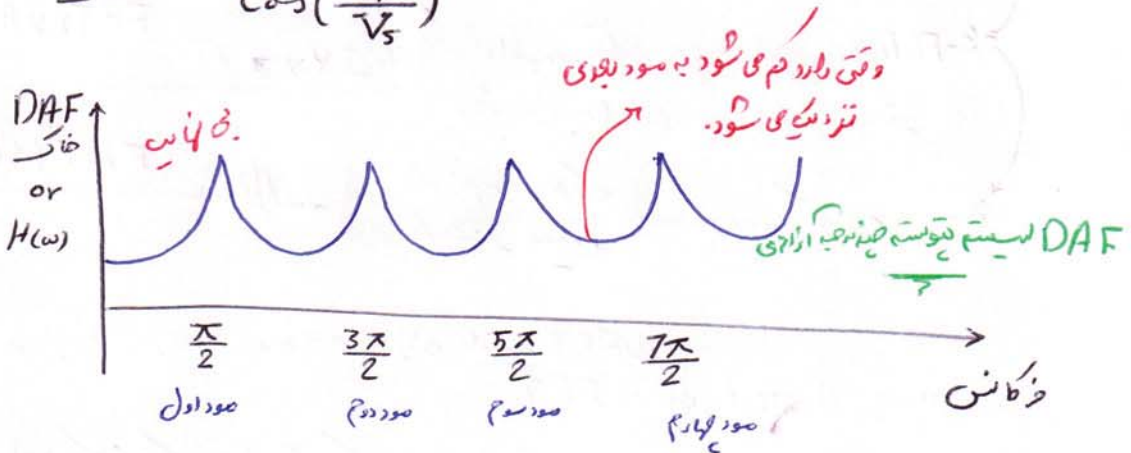 cos(
V_s
)
وقتی دارد کم می شود به مود بعدی
نزدیک می شود.
DAF
خاک
or
H(ω)
بی نهایت
DAF سیستم پیوسته چند درجه آزادی
π/2
3π/2
5π/2
7π/2
فرکانس
مود اول
مود دوم
مود سوم
مود چهارم